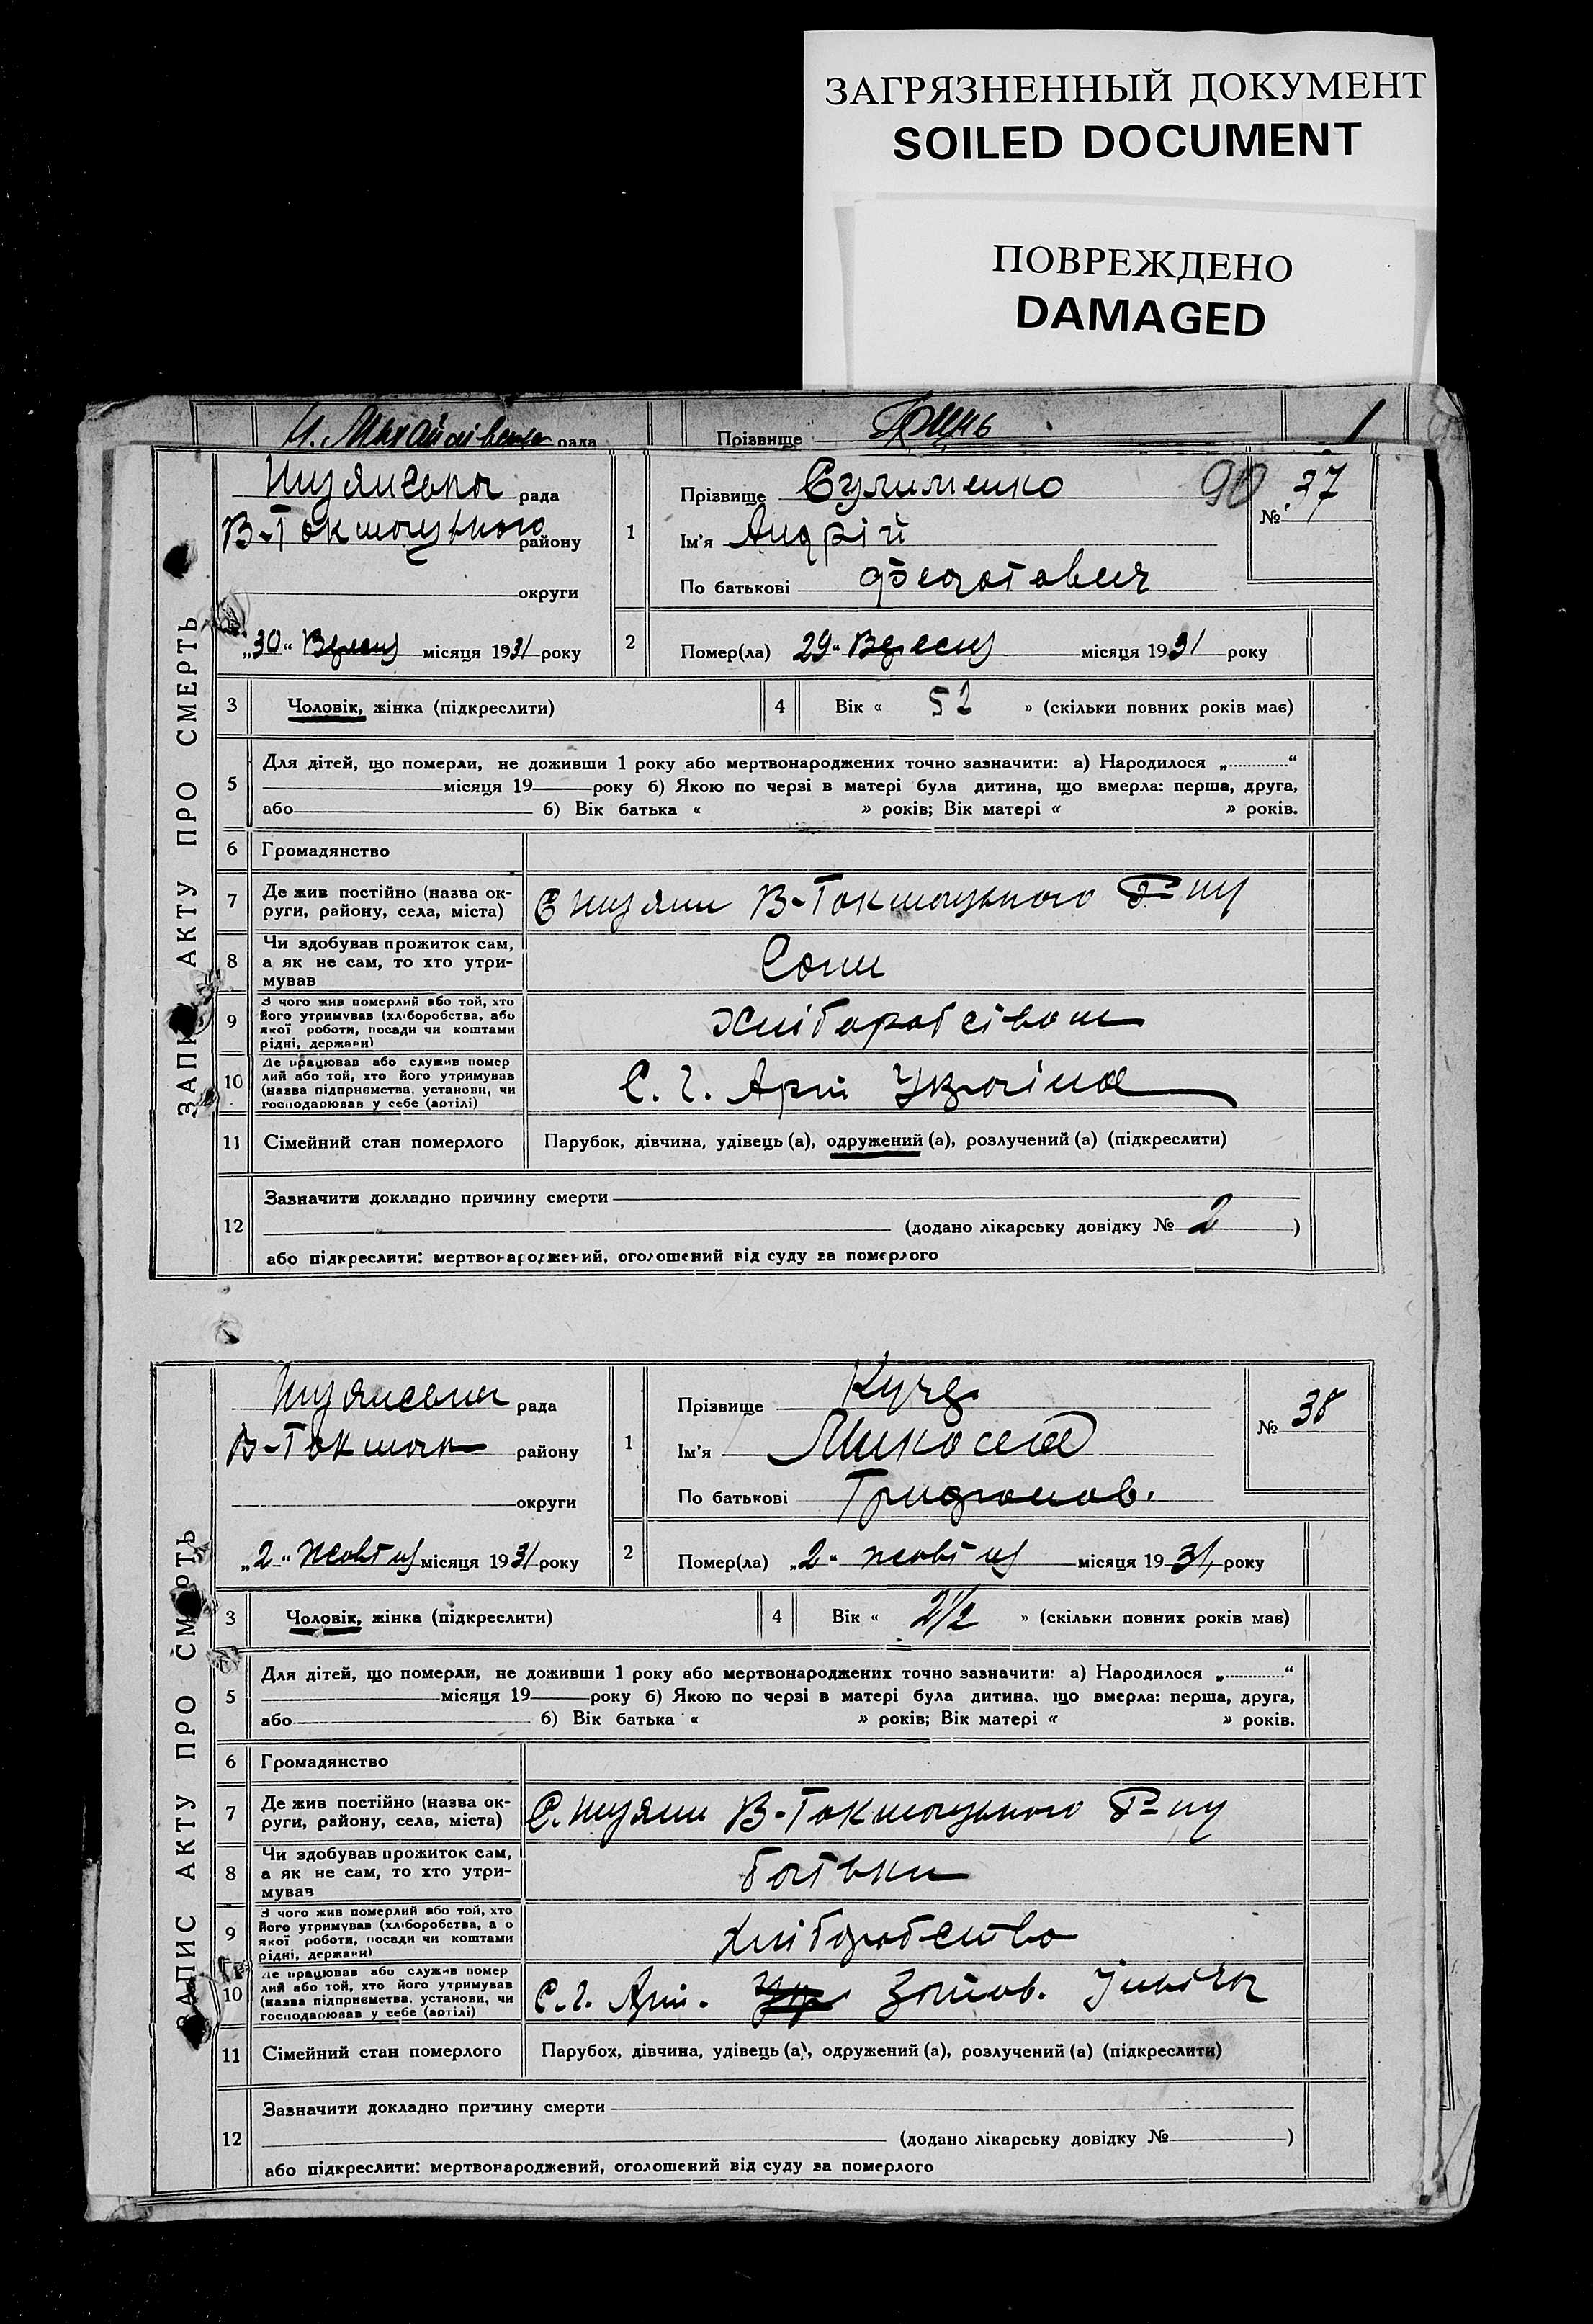 ЗАГРЯЗНЕННЫЙ ДОКУМЕНТ
SOILED DOCUMENT
ПОВРЕЖДЕНО
DAMAGED
рада
Прізвище
ЗАПИС АКТУ ПРО СМЕРТЬ
рада
В-Токмацького району
округи
„30“ Вересня місяця 1931 року
1
Прізвище Сулименко
Ім'я Андрій
По батькові Федотович
90
№ 37
2
Помер(ла) 29“ Вересня місяця 1931 року
3 Чоловік, жінка (підкреслити)
4 Вік « 52 » (скільки повних років має)
5 Для дітей, що померли, не доживши 1 року або мертвонароджених точно зазначити: а) Народилося „............“
місяця 19 року б) Якою по черзі в матері була дитина, що вмерла: перша, друга,
або б) Вік батька « » років; Вік матері « » років.
6 Громадянство
7 Де жив постійно (назва ок-
руги, району, села, міста)
В-Токмацького Р-ну
8 Чи здобував прожиток сам,
а як не сам, то хто утри-
мував
Сам
9 З чого жив померлий або той, хто
його утримував (хліборобства, або
якої роботи, посади чи коштами
рідні, держави)
Хліборобством
10 Де працював або служив помер
лий або той, хто його утримував
(назва підприємства, установи, чи
господарював у себе (артілі)
С. г. Арт Україна
11 Сімейний стан померлого
Парубок, дівчина, удівець (а), одружений (а), розлучений (а) (підкреслити)
12 Зазначити докладно причину смерти
(додано лікарську довідку № 2 )
або підкреслити: мертвонароджений, оголошений від суду за померлого
ЗАПИС АКТУ ПРО СМЕРТЬ
рада
В-Токмак району
округи
„2“ жовтня місяця 1931 року
1
Прізвище Куца
Ім'я Микола
По батькові Трифонов.
№ 38
2
Помер(ла) „2“ жовтня місяця 1931, року
3 Чоловік, жінка (підкреслити)
4 Вік « 2 1/2 » (скільки повних років має)
5 Для дітей, що померли, не доживши 1 року або мертвонароджених точно зазначити: а) Народилося „............“
місяця 19 року б) Якою по черзі в матері була дитина, що вмерла: перша, друга,
або б) Вік батька « » років; Вік матері « » років.
6 Громадянство
7 Де жив постійно (назва ок-
руги, району, села, міста)
В-Токмацького Р-ну
8 Чи здобував прожиток сам,
а як не сам, то хто утри-
мував
батьки
9 З чого жив померлий або той, хто
його утримував (хліборобства, або
якої роботи, посади чи коштами
рідні, держави)
хліборобство
10 Де працював або служив помер
лий або той, хто його утримував
(назва підприємства, установи, чи
господарював у себе (артілі)
С. г. Арт.
11 Сімейний стан померлого
Парубок, дівчина, удівець (а), одружений (а), розлучений (а) (підкреслити)
12 Зазначити докладно причину смерти
(додано лікарську довідку № )
або підкреслити: мертвонароджений, оголошений від суду за померлого